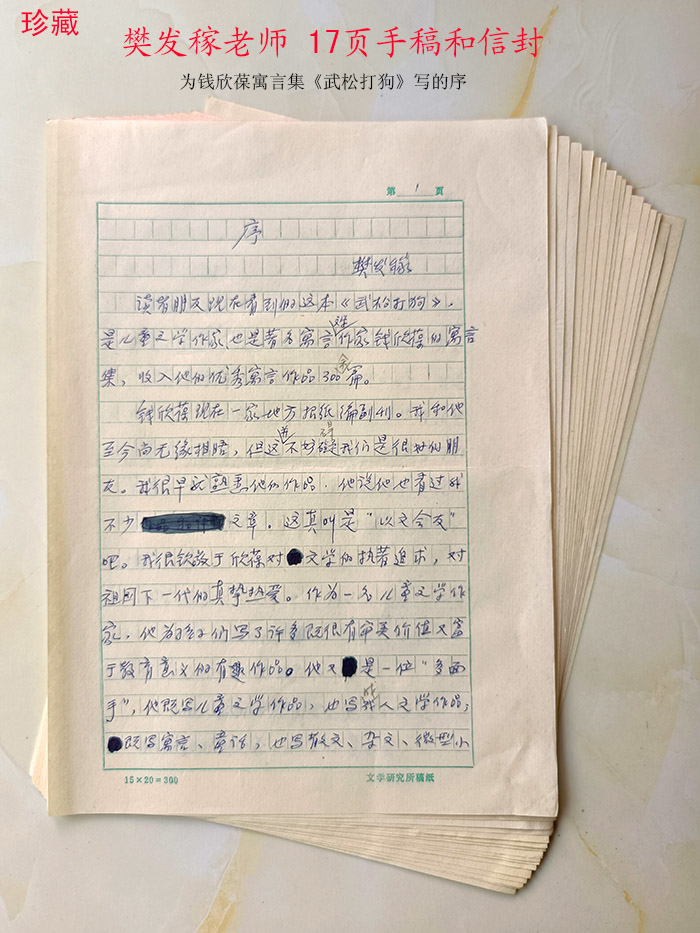 珍藏
樊发稼老师 17页手稿和信封
为钱欣葆寓言集《武松打狗》写的序
第 1 页
序
樊发稼
读者朋友现在看到的这本《武松打狗》，
是儿童文学作家也是著名寓言作家钱欣葆的寓言
集，收入他的优秀寓言作品300余篇。
钱欣葆现在一家地方报纸编副刊。我和他
至今尚无缘相晤，但这并不妨碍我们是很好的朋
友。我很早就熟悉他的作品，他说他也看过我
不少文章。这真叫是“以文会友”
吧。我很钦敬于欣葆对文学的执著追求，对
祖国下一代的真挚热爱。作为一名儿童文学作
家，他为孩子们写了许多既很有审美价值又富
于教育意义的有趣作品。他又是一位“多面
手”，他既写儿童文学作品，也写成人文学作品；
既写寓言、童话，也写散文、杂文、微型小
15×20=300
文学研究所稿纸